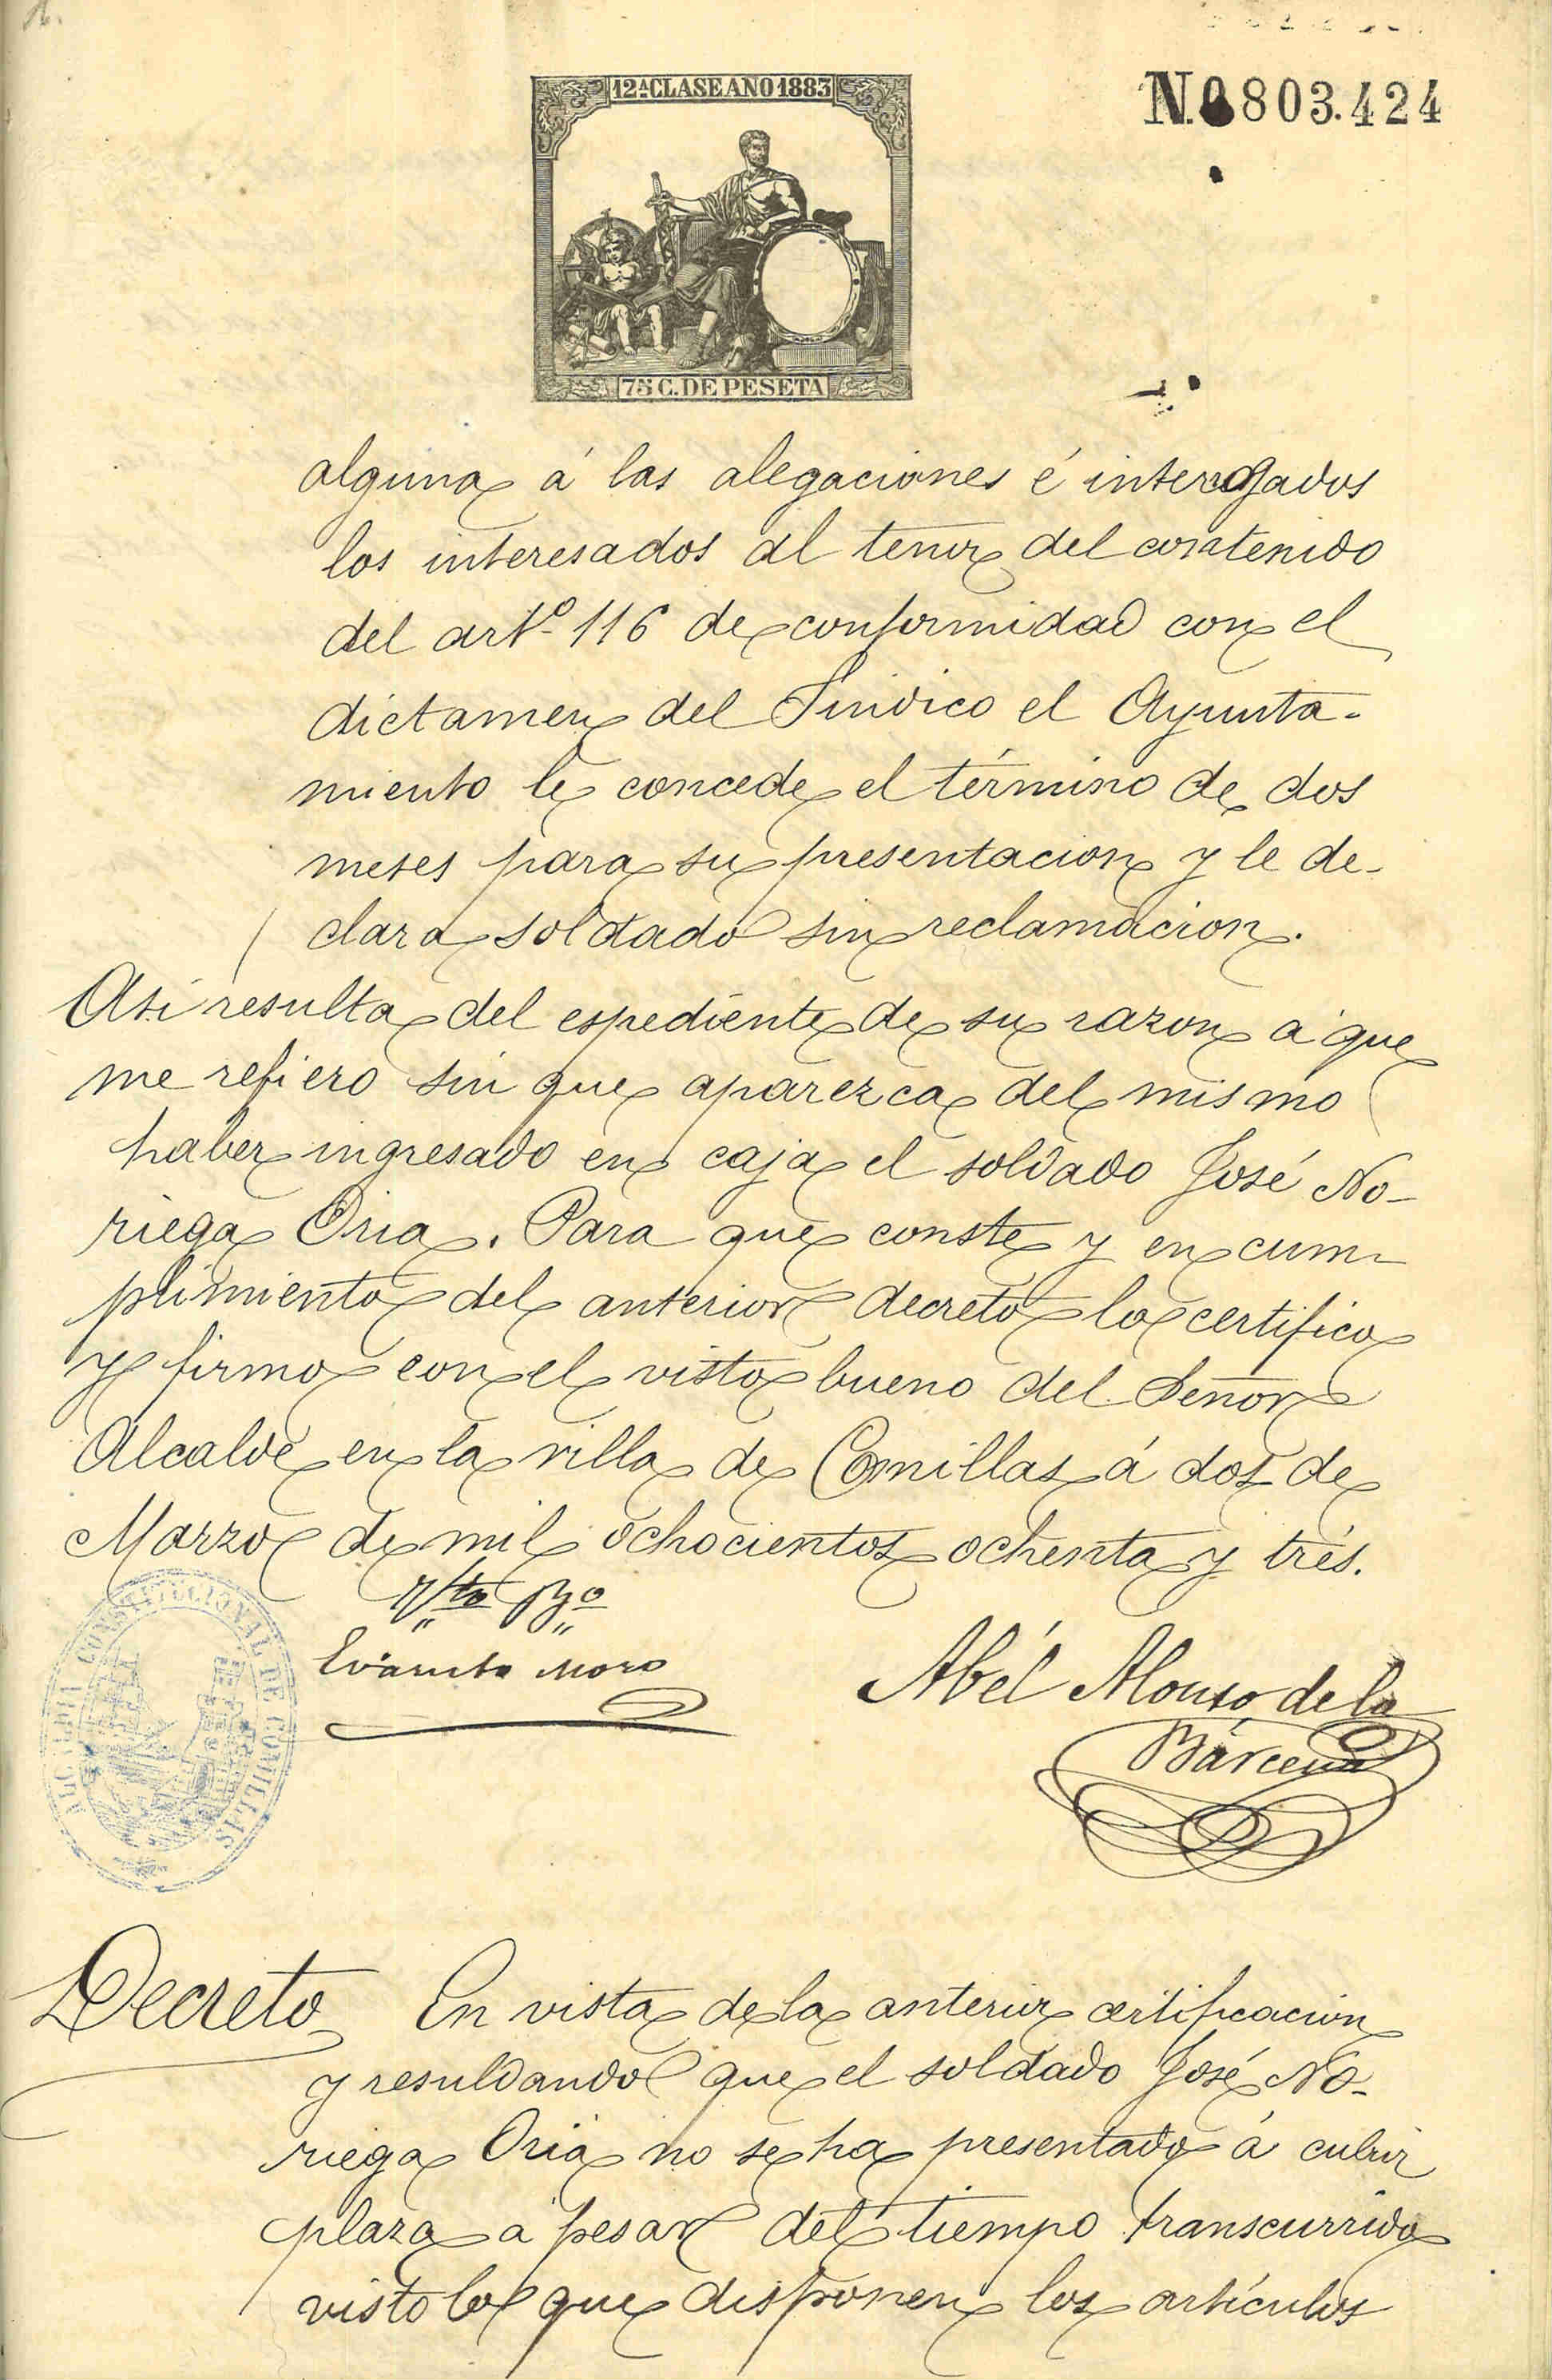 12ª CLASE AÑO 1883
N.0803.424
75 C. DE PESETA
alguna á las alegaciones é interrogados
los interesados al tenor del contenido
del artº 116 de conformidad con el
dictamen del Sindico el Ayunta-
miento le concede el término de dos
meses para su presentacion y le de-
clara soldado sin reclamacion.
Asi resulta del espediente de su razon á que
me refiero sin que aparezca del mismo
haber ingresado en caja el soldado José No-
riega Oria. Para que conste y en cum-
plimiento del anterior decreto lo certifico
y firmo con el visto bueno del Señor
Alcalde en la villa de Comillas á dos de
Marzo de mil ochocientos ochenta y trés.
Vto Bo
Evaristo Moro
Abél Alonso de la
Bárcena
ALCALDIA CONSTITUCIONAL DE COMILLAS
Decreto En vista de la anterior certificacion
y resuldando que el soldado José No-
riega Oria no se ha presentado á cubrir
plaza á pesar del tiempo transcurrido
visto lo que disponen los artículos